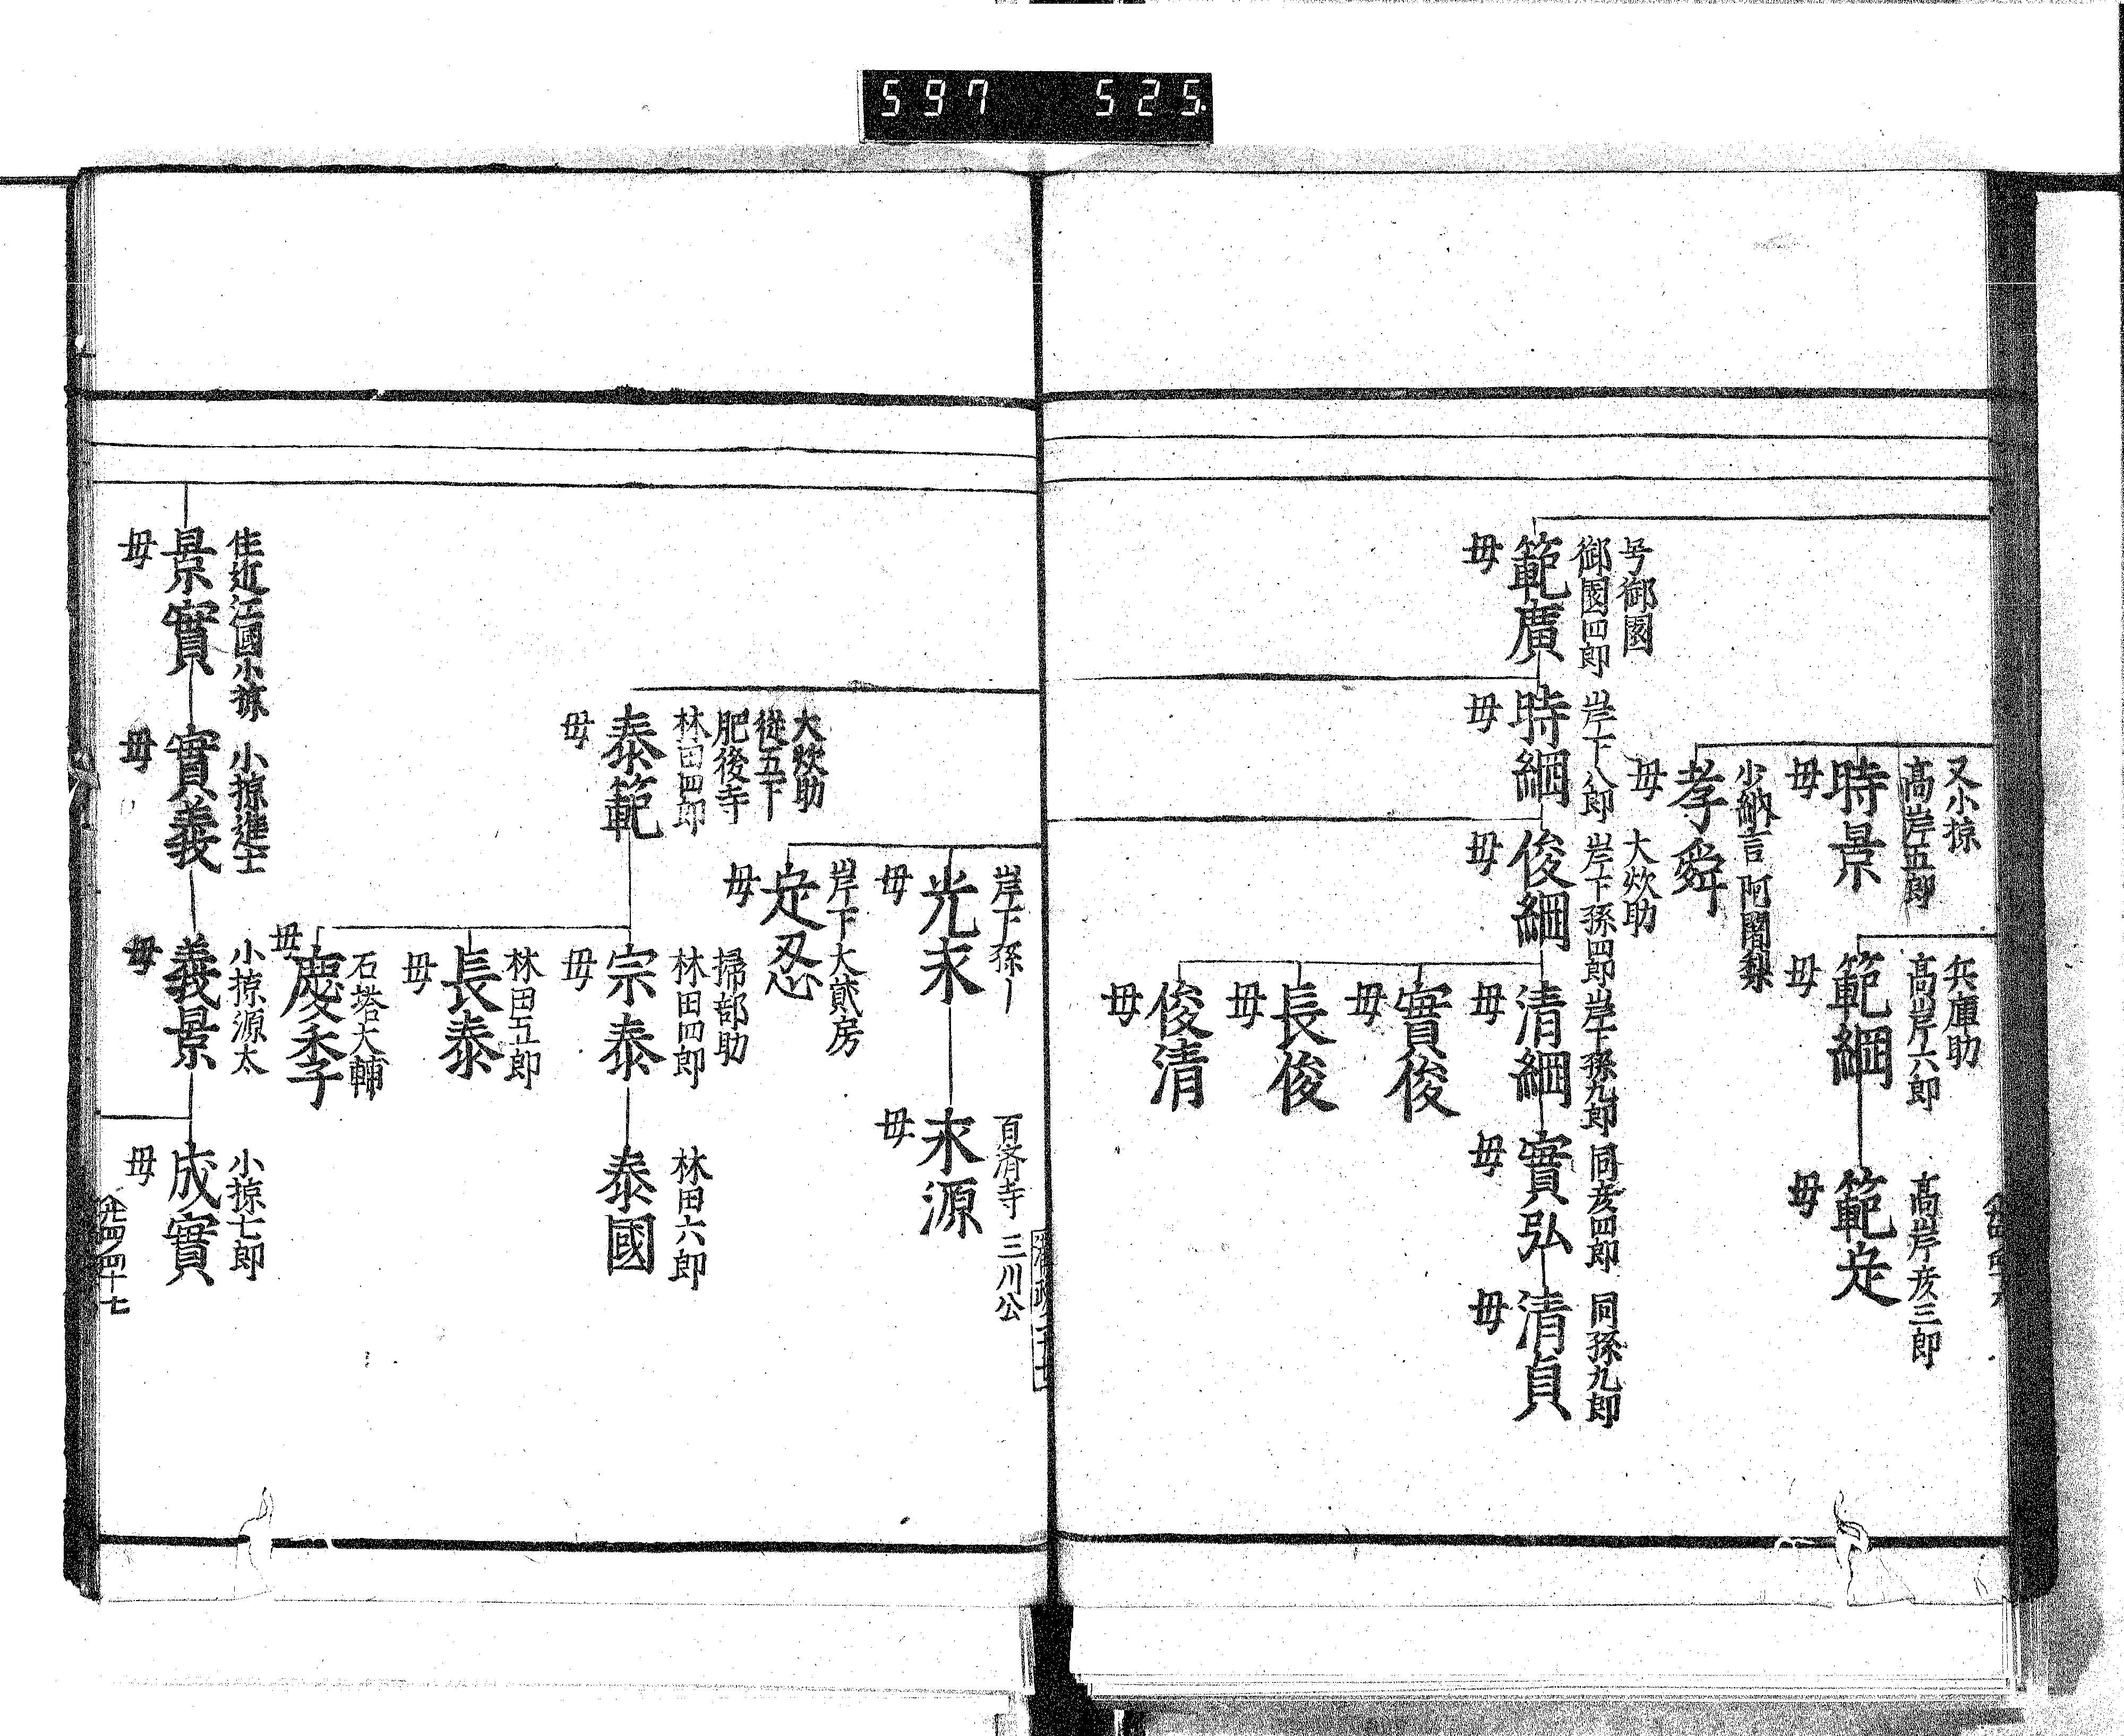 597 525
又小掠
高岸五郎
時景
母
少納言 阿闍梨
孝舜
母
兵庫助
高岸六郎
範綱
母
高岸彦三郎
範定
母
号御園
御園四郎
範廣
母
岸下八郎
時綱
母
大炊助
岸下孫四郎
俊綱
母
岸下孫九郎
清綱
母
同彦四郎
實弘
母
同孫九郎
清貞
母
實俊
母
長俊
母
俊清
母
岸下孫〡
光永
母
百済寺 三川公
永源
母
岸下大貳房
定忍
母
大炊助
従五下
肥後寺
林田四郎
泰範
母
掃部助
林田四郎
宗泰
母
林田六郎
泰國
林田五郎
長泰
母
石塔大輔
慶季
母
住近江國小掠
景實
母
小掠進士
實義
母
小掠源太
義景
母
小掠七郎
成實
母